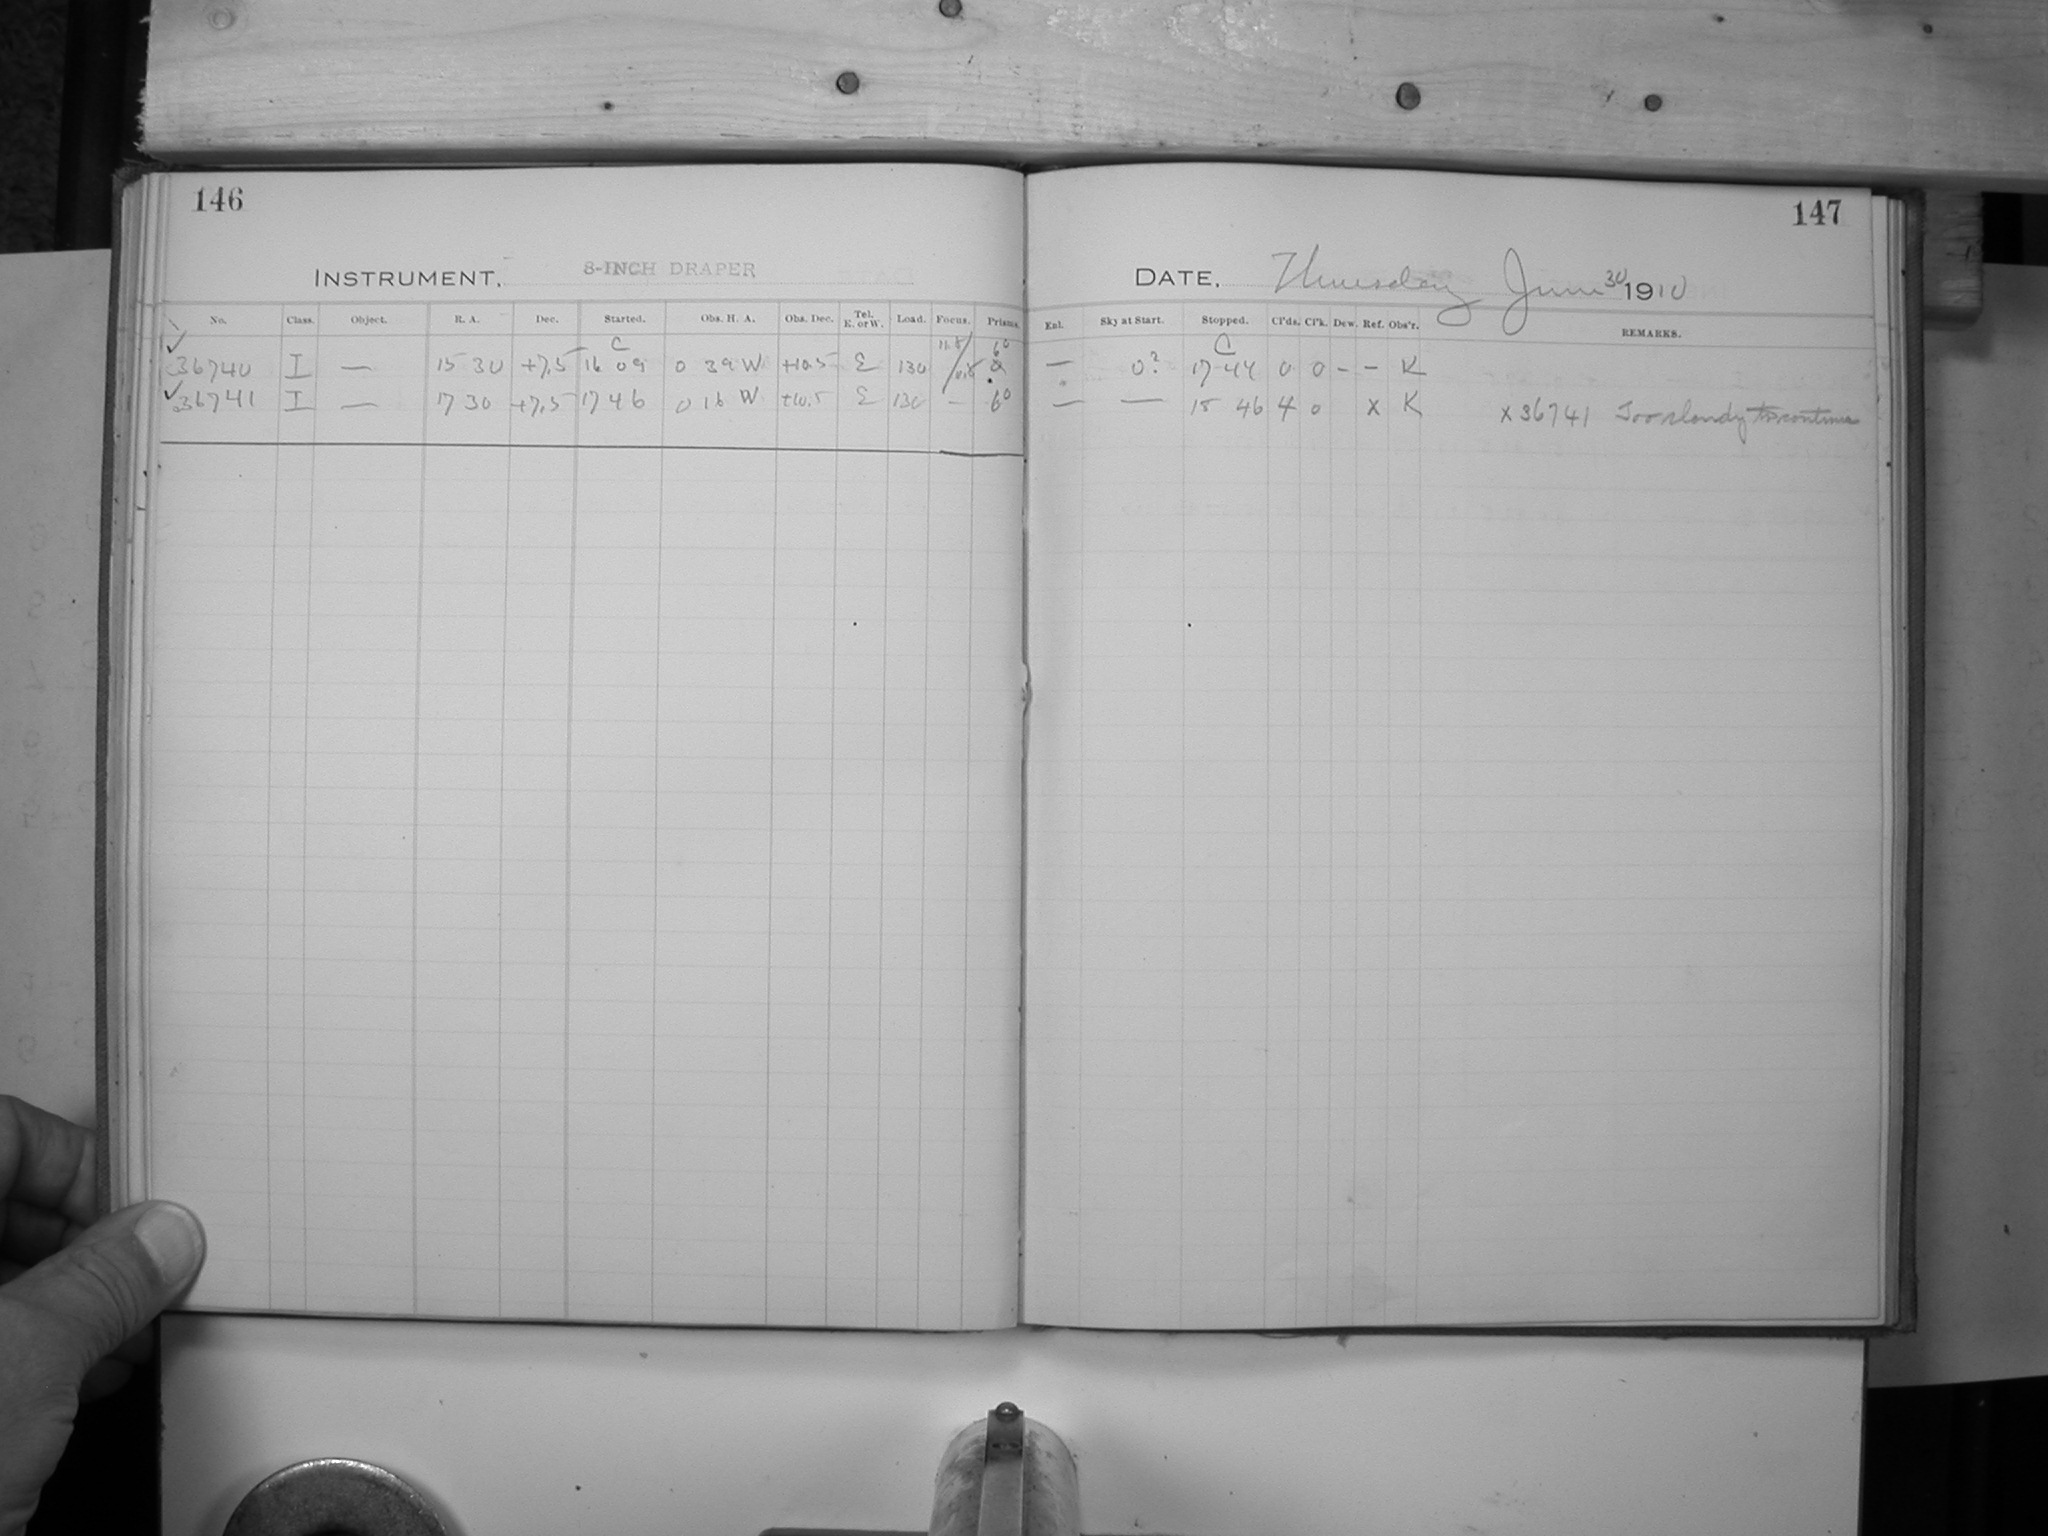 146
INSTRUMENT, 8-INCH DRAPER
No. Class. Object. R. A. Dec. Started. Obs. H. A. Obs. Dec. Tel. E. or W. Load. Focus. Prisms.
✓ 36740 I — 15 30 +7.5 C 16 09 0 39 W +10.5 E 130 11.8 / 6°
✓ 36741 I — 17 30 +7.5 17 46 0 16 W +10.5 E 130 — 6°
147
DATE, Thursday June 30 1910
Enl. Sky at Start. Stopped. Cl'ds. Cl'k. Dew. Ref. Obs'r. REMARKS.
— 0? C 17 44 0 0 - - K
— — 18 46 4 0 x K x 36741 Too cloudy to continue